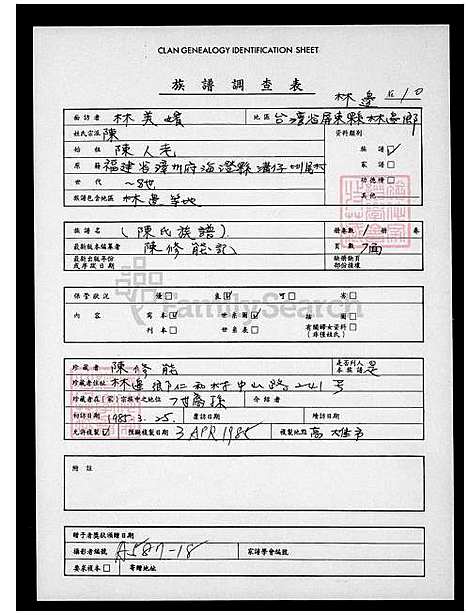 CLAN GENEALOGY IDENTIFICATION SHEET
族譜調查表
林邊 在10
訪者 林美嬪 地區 台灣省屏東縣林邊鄉
姓氏宗派 陳 資料類別
始祖 陳人老 族譜 ☑
原籍 福建省漳州府海澄縣 家譜 □
世代 ~8世 功德榜 □
族譜包含地區 林邊等地 其他
族譜名 (陳氏族譜) 冊卷數 1 冊 卷
最新版本編著者 陳修能記 頁數 7面
最新出版年份或序跋日期 缺欄缺頁部份請填
FamilySearch
保管狀況 優 □ 良 ☑ 可 □ 劣 □
內容 寫本 ☑ 世系圖 ☑ 插圖 □
刊本 □ 世系表 □ 有關婦女資料 □ (非僅姓氏)
珍藏者 陳修能 是否列入本族譜 是
珍藏者住址 林邊鄉仁和村中山路241號
珍藏者在(家)宗族中之地位 7世裔孫 介紹者
初訪日期 1985.3.25. 覆訪日期 續訪日期
允許複製 ☑ 預購複製日期 3 APR 1985 複製地點 高雄市
附註
贈予者獎狀頒贈日期
攝影者編號 A587-18 家譜學會編號
要求複本 □ 寄贈地址